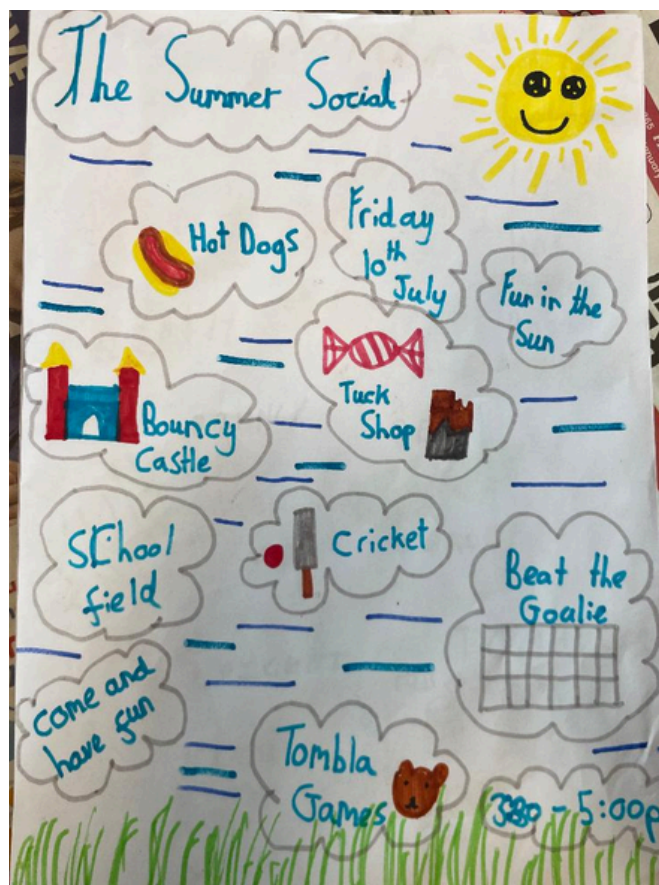 The Summer Social
Hot Dogs
Friday
10th
July
Fun in the
Sun
Bouncy
Castle
Tuck
Shop
SChool
field
Cricket
Beat the
Goalie
come and
have fun
Tombla
Games
- 5:00p